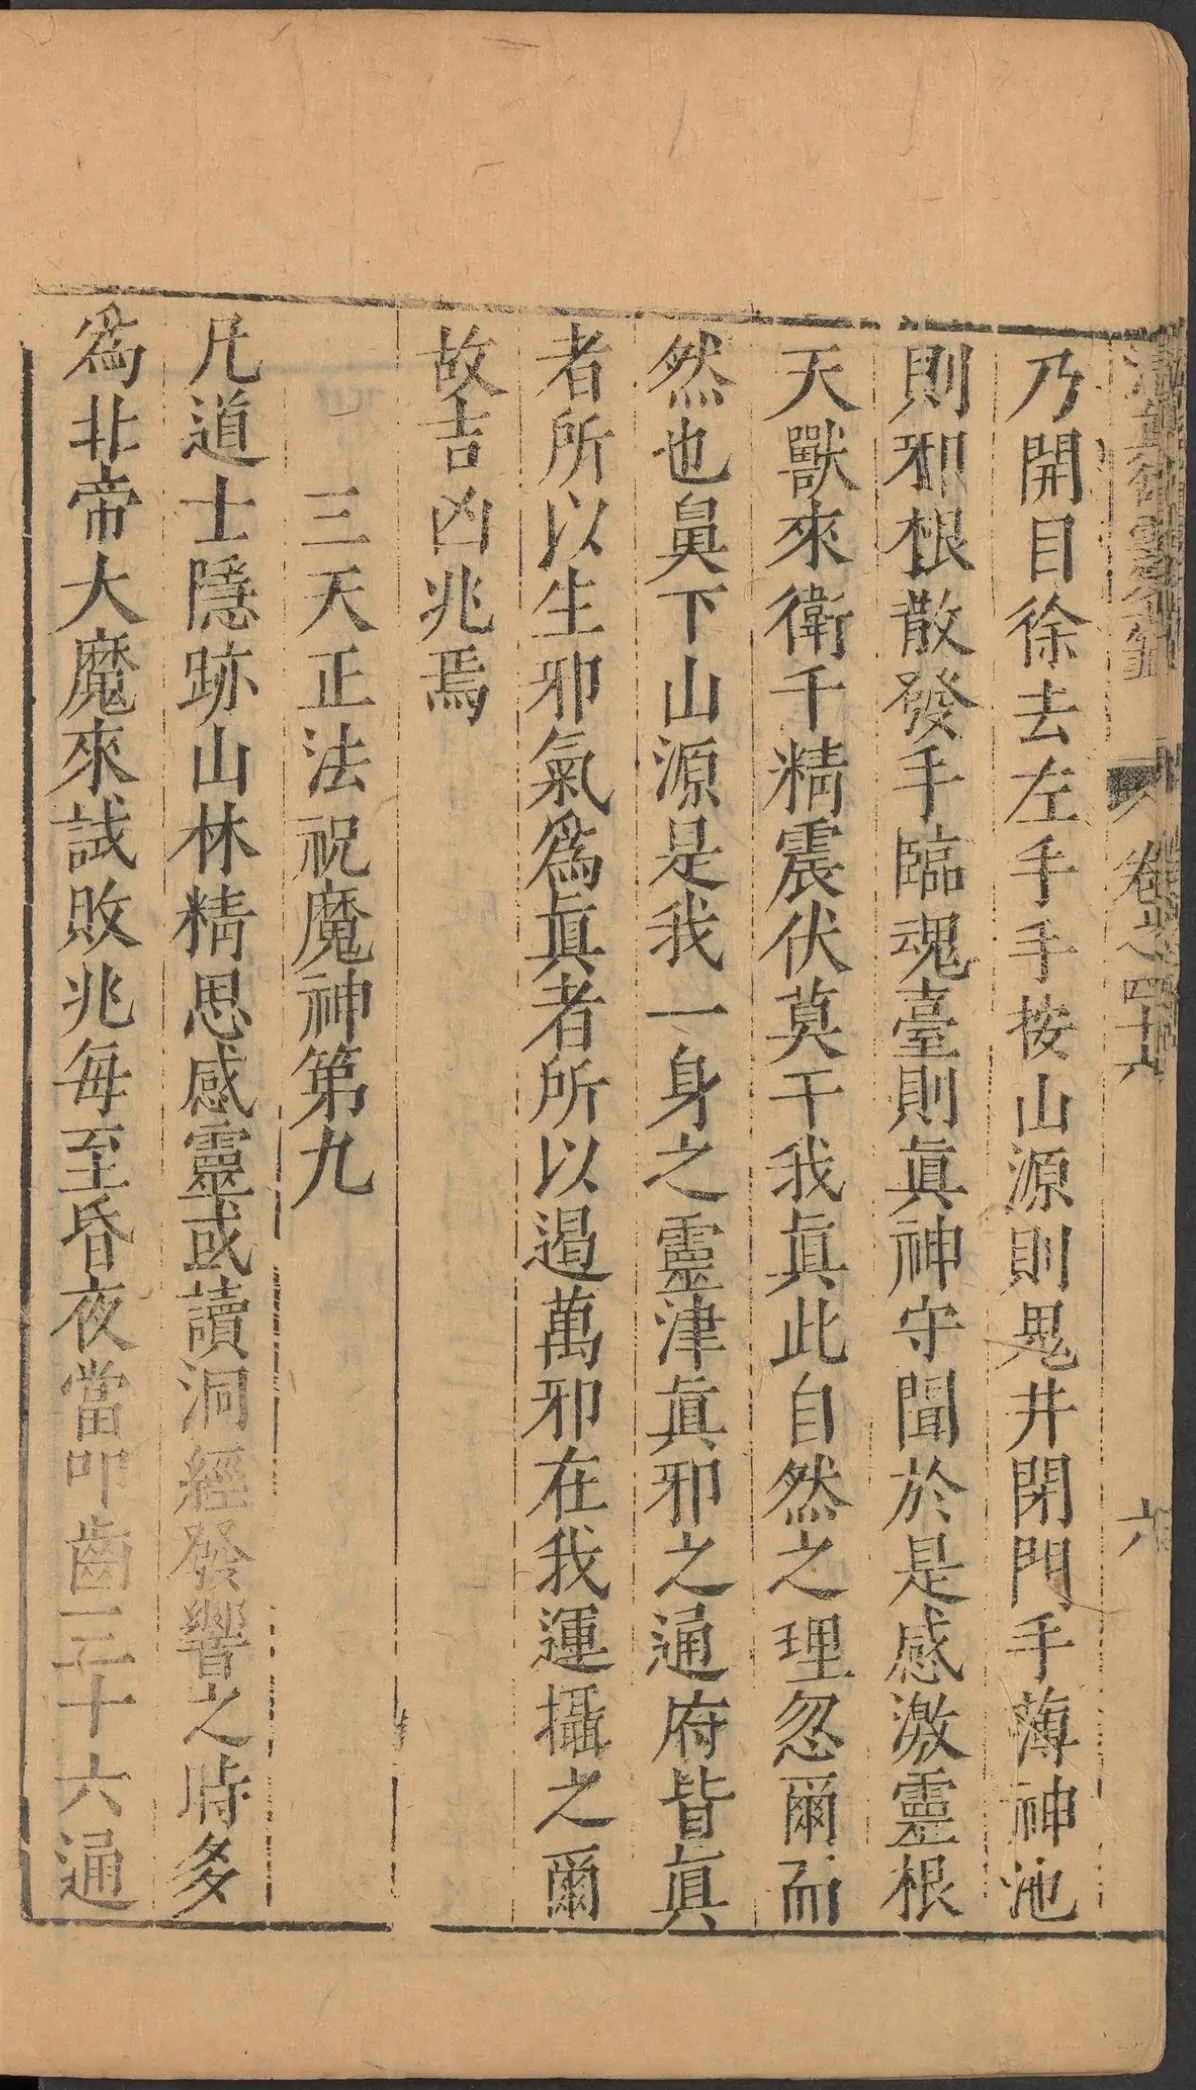 卷之四十六 六
乃開目徐去左手手按山源則鬼井閉門手薄神池
則邪根散發手臨魂臺則眞神守關於是感激靈根
天獸來衛千精震伏莫干我眞此自然之理忽爾而
然也鼻下山源是我一身之靈津眞邪之通府背眞
者所以生邪氣爲眞者所以遏萬邪在我運攝之爾
故吉凶兆焉
三天正法祝魔神第九
凡道士隱跡山林精思感靈或讀洞經發響之時多
爲北帝大魔來試敗兆每至昏夜當叩齒三十六通